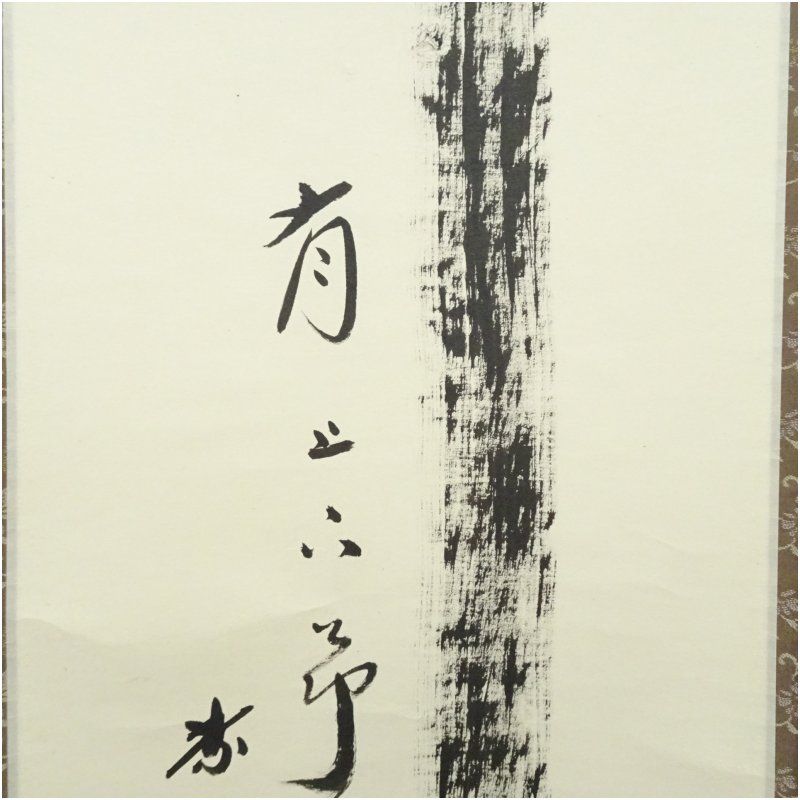 有上下節